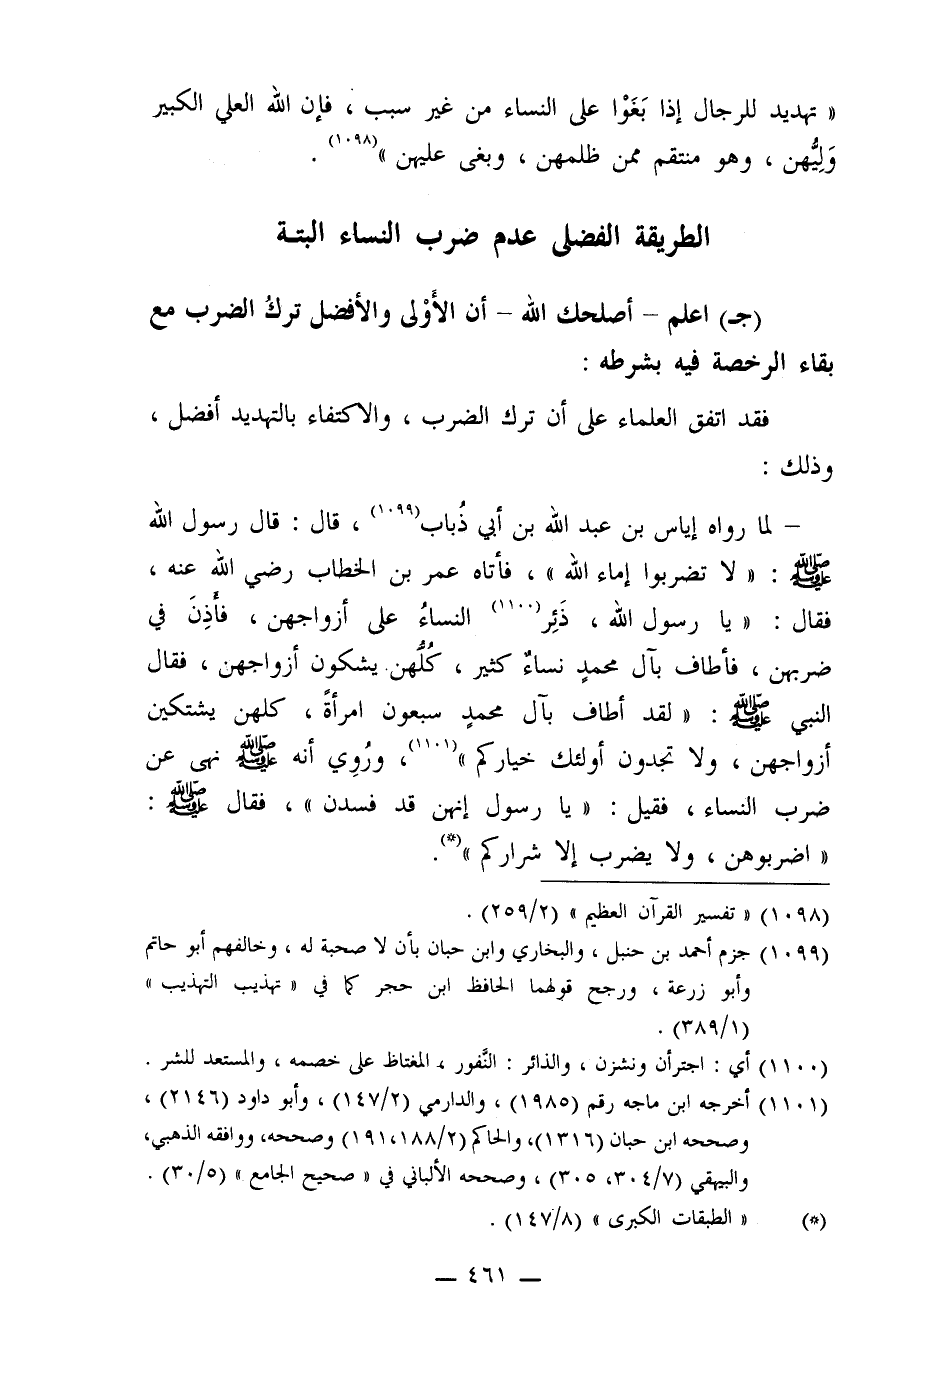 « تهديد للرجال إذا بَغَوْا على النساء من غير سبب ، فإن الله العلي الكبير
وَلِيُّهن ، وهو منتقم ممن ظلمهن ، وبغى عليهن »(١٠٩٨) .
الطريقة الفضلى عدم ضرب النساء البتـة
(جـ) اعلم – أصلحك الله – أن الأَوْلى والأفضل تركُ الضرب مع
بقاء الرخصة فيه بشرطه :
فقد اتفق العلماء على أن ترك الضرب ، والاكتفاء بالتهديد أفضل ،
وذلك :
– لما رواه إياس بن عبد الله بن أبي ذُباب(١٠٩٩) ، قال : قال رسول الله
ﷺ : « لا تضربوا إماء الله » ، فأتاه عمر بن الخطاب رضي الله عنه ،
فقال : « يا رسول الله ، ذَئِر(١١٠٠) النساءُ على أزواجهن ، فأْذِنَ في
ضربهن ، فأطاف بآل محمدٍ نساءٌ كثير ، كُلُّهن يشكون أزواجهن ، فقال
النبي ﷺ : « لقد أطاف بآل محمدٍ سبعون امرأةً ، كلهن يشتكين
أزواجهن ، ولا تجدون أولئك خياركم »(١١٠١)، ورُوِي أنه ﷺ نهى عن
ضرب النساء ، فقيل : « يا رسول إنهن قد فسدن » ، فقال ﷺ :
« اضربوهن ، ولا يضرب إلا شراركم »(*).
(١٠٩٨) « تفسير القرآن العظيم » (٢٥٩/٢) .
(١٠٩٩) جزم أحمد بن حنبل ، والبخاري وابن حبان بأن لا صحبة له ، وخالفهم أبو حاتم
وأبو زرعة ، ورجح قولهما الحافظ ابن حجر كما في « تهذيب التهذيب »
(٣٨٩/١) .
(١١٠٠) أي : اجترأن ونشزن ، والذائر : النَّفور ، المغتاظ على خصمه ، والمستعد للشر .
(١١٠١) أخرجه ابن ماجه رقم (١٩٨٥) ، والدارمي (١٤٧/٢) ، وأبو داود (٢١٤٦) ،
وصححه ابن حبان (١٣١٦)، والحاكم (١٨٨/٢،١٩١) وصححه، ووافقه الذهبي،
والبيهقي (٣٠٤/٧، ٣٠٥) ، وصححه الألباني في « صحيح الجامع » (٣٠/٥) .
(*) « الطبقات الكبرى » (١٤٧/٨) .
— ٤٦١ —